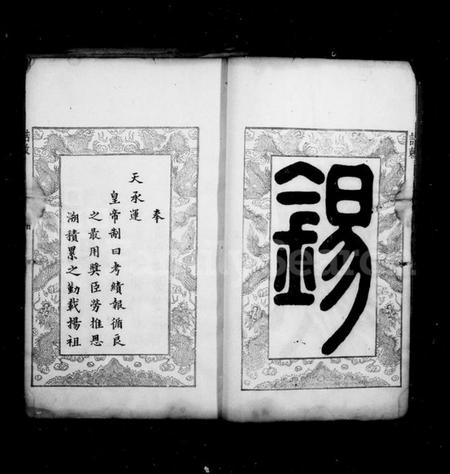 錫
奉
天承運
皇帝制曰考績報循良
之最用獎臣勞推恩
溯積累之勤載揚祖